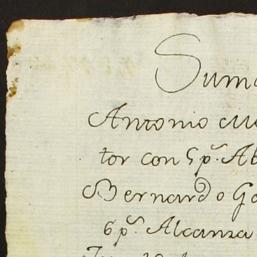 Suma
Antonio
tor con 5 p.s
Bernardo Go
6 p.s Alcanza